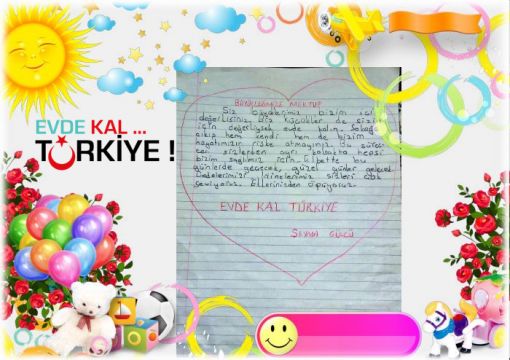 EVDE KAL ...
TÜRKİYE !
MEKTUP
Siz büyüklerimiz bizim için
değerlisiniz. Biz küçükler de sizin
için değerliysek evde kalın. Sokağa
çıkıp hem kendi hem de bizim
hayatımızın riske atmayınız. Bu süreç
sizlerden ayrı hepsi
bizim sağlımız için. Elbette bu
günlerde geçecek, güzel günler gelecek.
Dedelerimizi ninelerimizi sizleri çok
seviyoruz. Ellerinizden öpüyoruz.
EVDE KAL TÜRKİYE